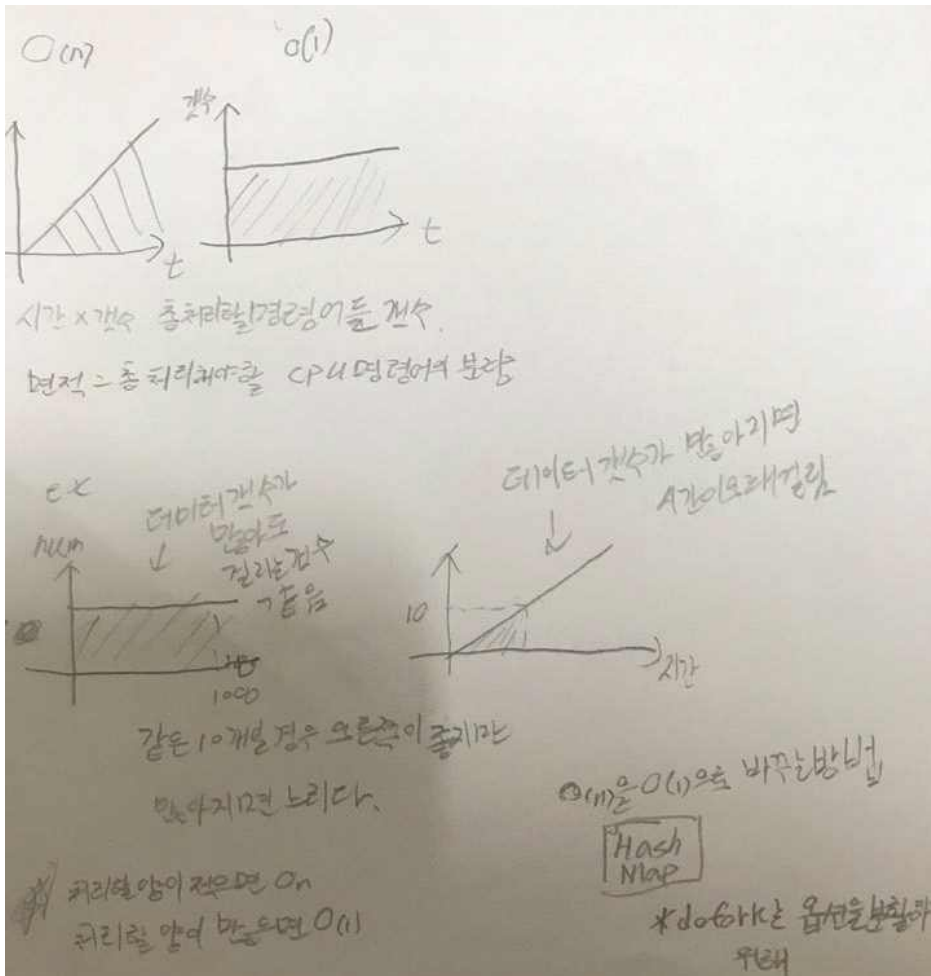 O(n)
O(1)
갯수
t
t
시간 x 갯수 총처리할명령어들 갯수.
면적 = 총 처리해야할 CPU명령어의 분량
ex
num
데이터 갯수가
많아도
걸리는건수
같음
1000
데이터 갯수가 많아지면
시간이오래걸림
10
시간
같은 10개일 경우 오른쪽이 좋지만
많아지면 느리다.
O(n)을 O(1)으로 바꾸는방법
Hash
Map
처리할 양이 적으면 On
처리할 양이 많으면 O(1)
*do fork는 옵션을 분할하
위해